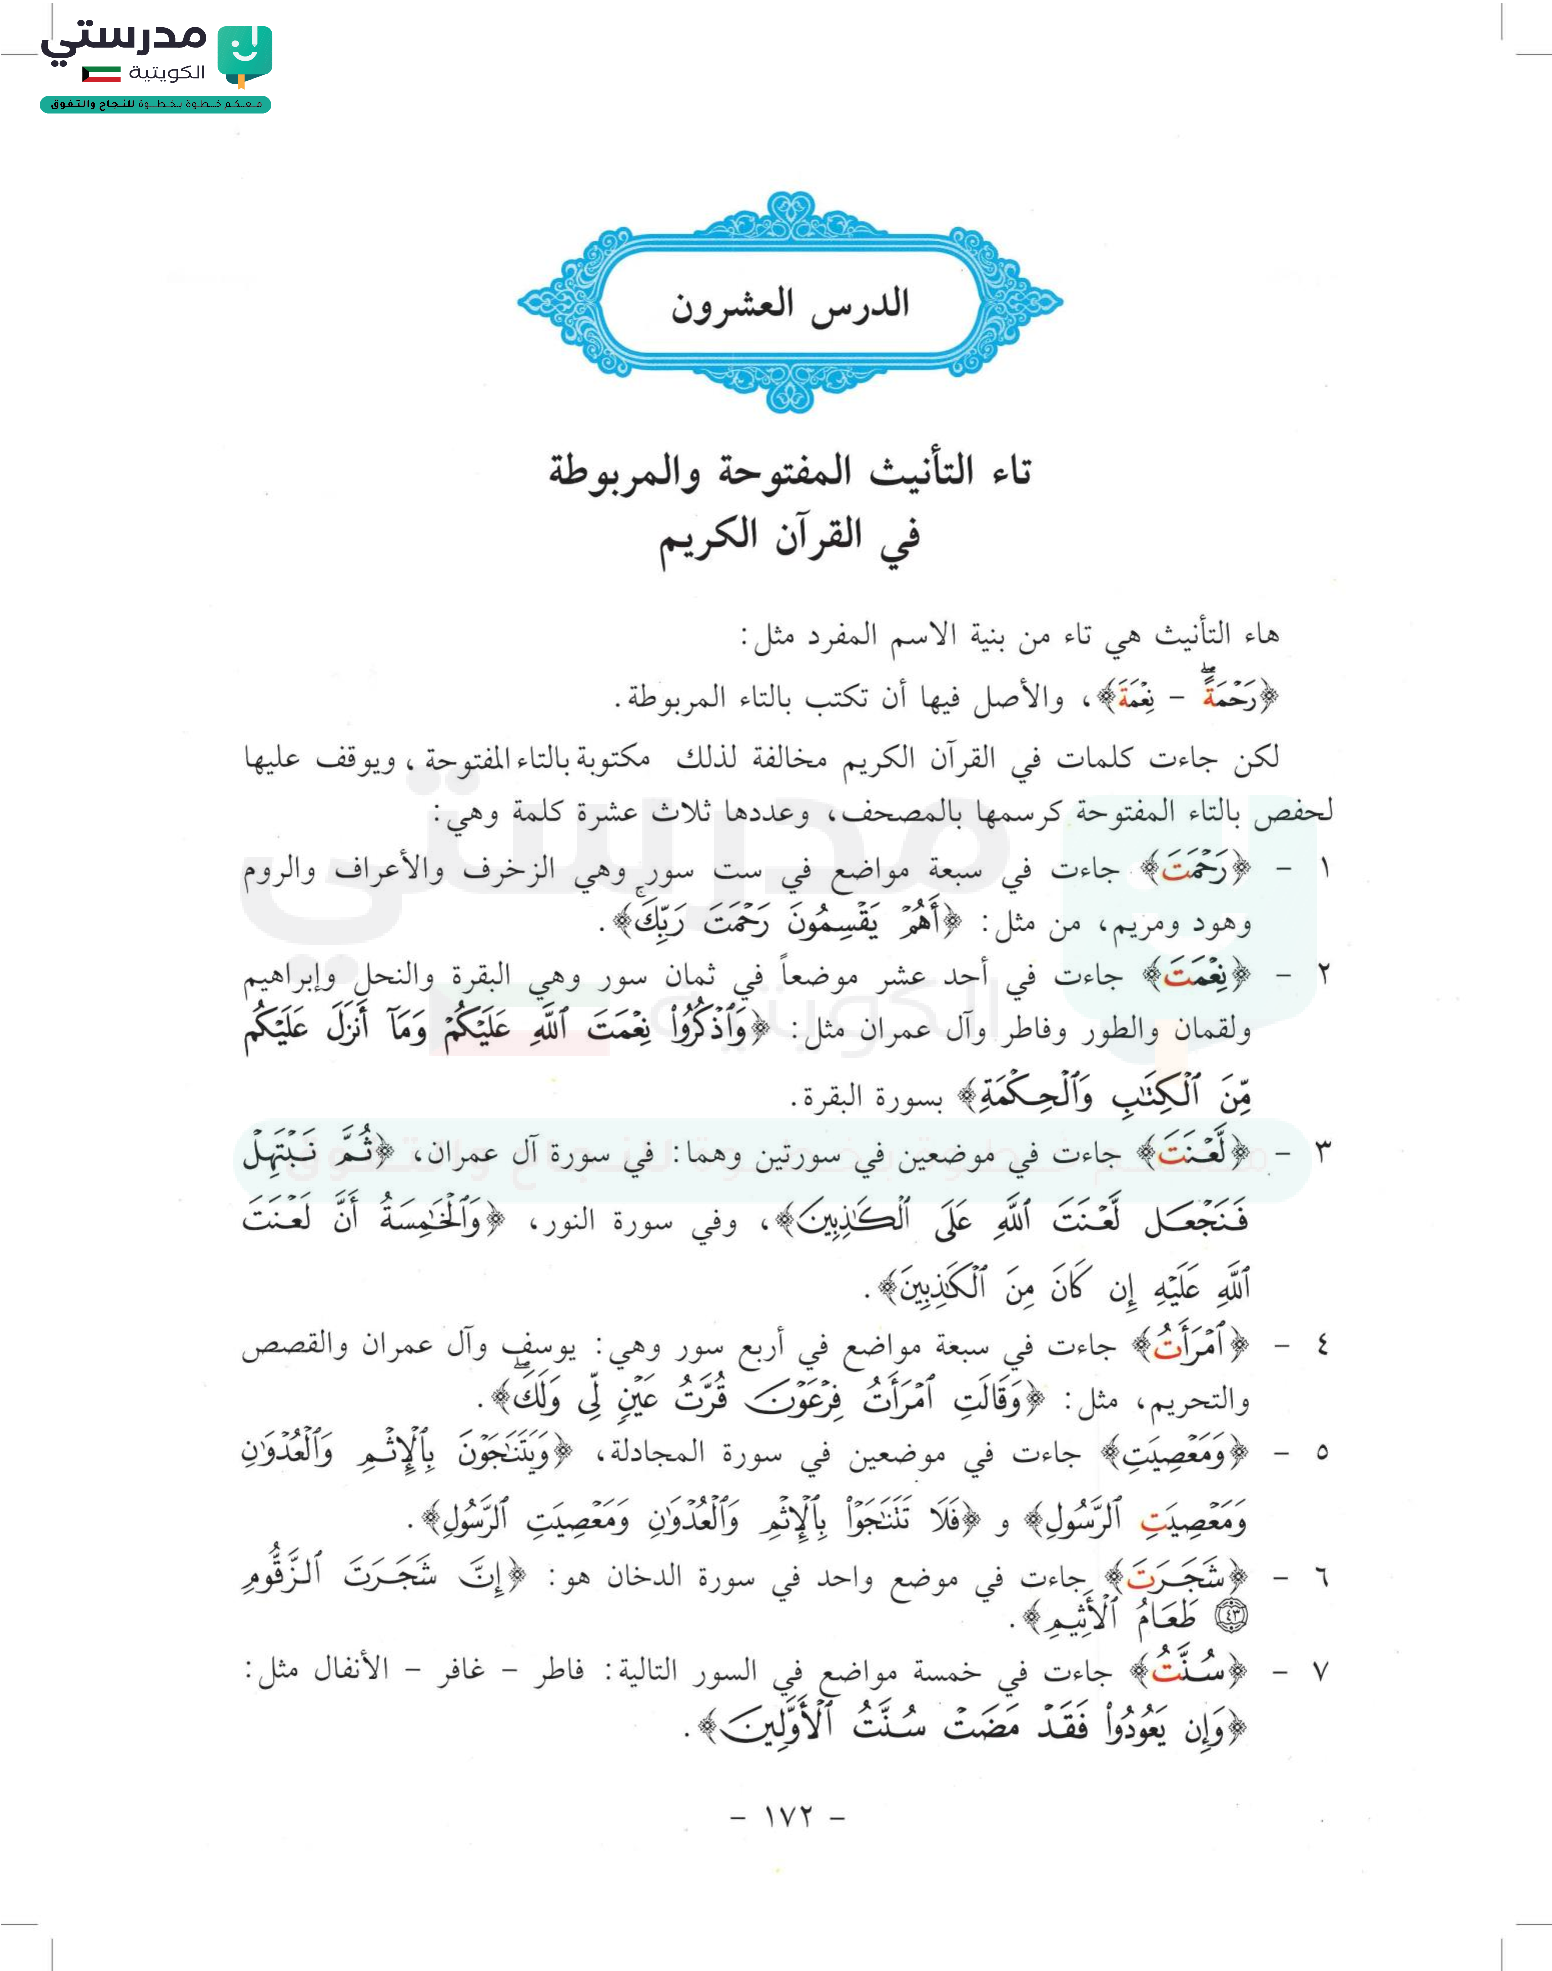 مدرستي
الكويتية
معكم خطوة بخطوة للنجاح والتفوق
الدرس العشرون
تاء التأنيث المفتوحة والمربوطة
في القرآن الكريم
هاء التأنيث هي تاء من بنية الاسم المفرد مثل:
﴿رَحْمَةًۖ – نِعْمَةَ﴾، والأصل فيها أن تكتب بالتاء المربوطة.
لكن جاءت كلمات في القرآن الكريم مخالفة لذلك مكتوبة بالتاء المفتوحة، ويوقف عليها
لحفص بالتاء المفتوحة كرسمها بالمصحف، وعددها ثلاث عشرة كلمة وهي:
١ – ﴿رَحْمَتَ﴾ جاءت في سبعة مواضع في ست سور وهي الزخرف والأعراف والروم
وهود ومريم، من مثل: ﴿أَهُمْ يَقْسِمُونَ رَحْمَتَ رَبِّكَۚ﴾.
٢ – ﴿نِعْمَتَ﴾ جاءت في أحد عشر موضعاً في ثمان سور وهي البقرة والنحل وإبراهيم
ولقمان والطور وفاطر وآل عمران مثل: ﴿وَٱذْكُرُوا۟ نِعْمَتَ ٱللَّهِ عَلَيْكُمْ وَمَآ أَنزَلَ عَلَيْكُم
مِّنَ ٱلْكِتَٰبِ وَٱلْحِكْمَةِ﴾ بسورة البقرة.
٣ – ﴿لَّعْنَتَ﴾ جاءت في موضعين في سورتين وهما: في سورة آل عمران، ﴿ثُمَّ نَبْتَهِلْ
فَنَجْعَل لَّعْنَتَ ٱللَّهِ عَلَى ٱلْكَٰذِبِينَ﴾، وفي سورة النور، ﴿وَٱلْخَٰمِسَةُ أَنَّ لَعْنَتَ
ٱللَّهِ عَلَيْهِ إِن كَانَ مِنَ ٱلْكَٰذِبِينَ﴾.
٤ – ﴿ٱمْرَأَتُ﴾ جاءت في سبعة مواضع في أربع سور وهي: يوسف وآل عمران والقصص
والتحريم، مثل: ﴿وَقَالَتِ ٱمْرَأَتُ فِرْعَوْنَ قُرَّتُ عَيْنٍ لِّى وَلَكَۖ﴾.
٥ – ﴿وَمَعْصِيَتِ﴾ جاءت في موضعين في سورة المجادلة، ﴿وَيَتَنَٰجَوْنَ بِٱلْإِثْمِ وَٱلْعُدْوَٰنِ
وَمَعْصِيَتِ ٱلرَّسُولِ﴾ و ﴿فَلَا تَتَنَٰجَوْا۟ بِٱلْإِثْمِ وَٱلْعُدْوَٰنِ وَمَعْصِيَتِ ٱلرَّسُولِ﴾.
٦ – ﴿شَجَرَتَ﴾ جاءت في موضع واحد في سورة الدخان هو: ﴿إِنَّ شَجَرَتَ ٱلزَّقُّومِ
﴿٤٣﴾ طَعَامُ ٱلْأَثِيمِ﴾.
٧ – ﴿سُنَّتُ﴾ جاءت في خمسة مواضع في السور التالية: فاطر – غافر – الأنفال مثل:
﴿وَإِن يَعُودُوا۟ فَقَدْ مَضَتْ سُنَّتُ ٱلْأَوَّلِينَ﴾.
– ١٧٢ –